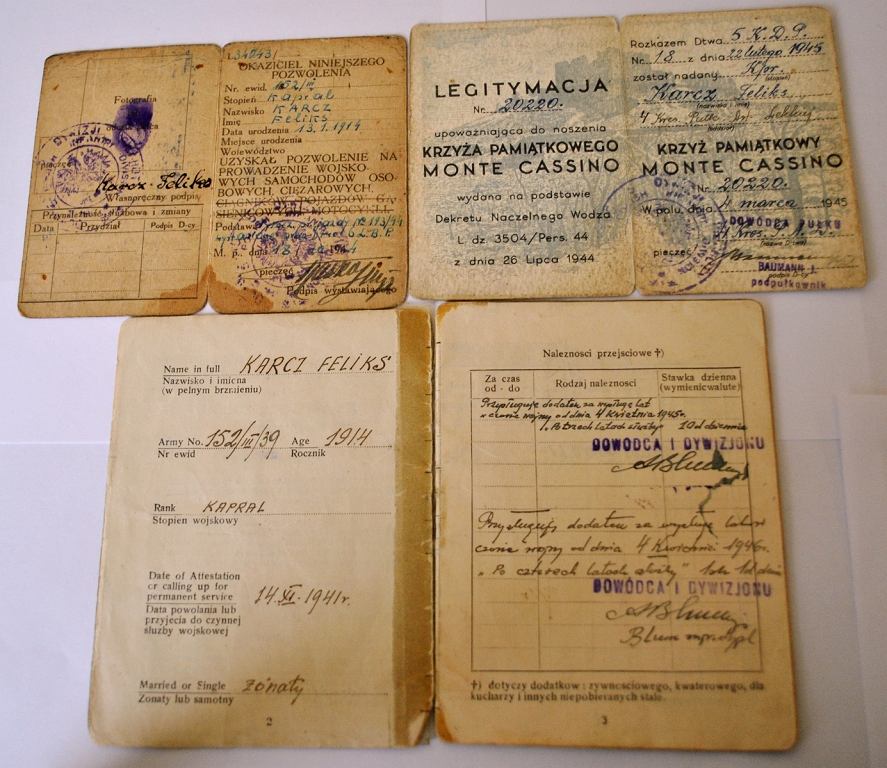 Fotografia
pieczęć
Karcz Feliks
Własnoręczny podpis
Przynależność służbowa i zmiany
Data Przydział Podpis D-cy
OKAZICIEL NINIEJSZEGO
POZWOLENIA
Nr. ewid. 152/III
Stopień Kapral
Nazwisko KARCZ
Imię FELIKS
Data urodzenia 13.1.1914
Miejsce urodzenia
Województwo
UZYSKAŁ POZWOLENIE NA
PROWADZENIE WOJSKO
WYCH SAMOCHODÓW OSO-
BOWYCH, CIĘŻAROWYCH,
CIĄGNIKÓW POJAZDÓW GĄ-
SIENICOWYCH MOTOCYKLI.
Podstawa
M. p., dnia 18
pieczęć
Podpis wystawiającego
LEGITYMACJA
Nr. 20220.
upoważniająca do noszenia
KRZYŻA PAMIĄTKOWEGO
MONTE CASSINO
wydana na podstawie
Dekretu Naczelnego Wodza
L. dz. 3504/Pers. 44
z dnia 26 Lipca 1944
Rozkazem Dtwa 5 K.D.P.
Nr. 18 z dnia 22 lutego 1945
został nadany Kpr.
Karcz Feliks
(nazwisko i imię)
KRZYŻ PAMIĄTKOWY
MONTE CASSINO
Nr. 20220.
W polu, dnia 4 marca 1945
DOWÓDCA PUŁKU
pieczęć
BAUMANN J.
podpis D-cy
podpułkownik
Name in full KARCZ FELIKS
Nazwisko i imicna
(w pełnym brzmieniu)
Army No. 152/III/39 Age 1914
Nr ewid Rocznik
Rank KAPRAL
Stopien wojskowy
Date of Attestation
or calling up for
permanent service 14.XI.1941r.
Data powolania lub
przyjecia do czynnej
sluzby wojskowej
Married or Single żonaty
Zonaty lub samotny
2
Naleznosci przejsciowe †)
Za czas od - do Rodzaj naleznosci Stawka dzienna (wymienicwalute)
Przysługuje dodatek za wysługę lat
w czasie wojny od dnia 4 kwietnia 1945r.
"Po trzech latach służby" 10d dziennie
DOWÓDCA I DYWIZJONU
Przysługuje dodatek za wysługę lat w
czasie wojny od dnia 4 Kwietnia 1946r.
"Po czterech latach służby"
DOWÓDCA I DYWIZJONU
†) dotyczy dodatkow : zywnosciowego, kwaterowego, dla
kucharzy i innych niepobieranych stale.
3